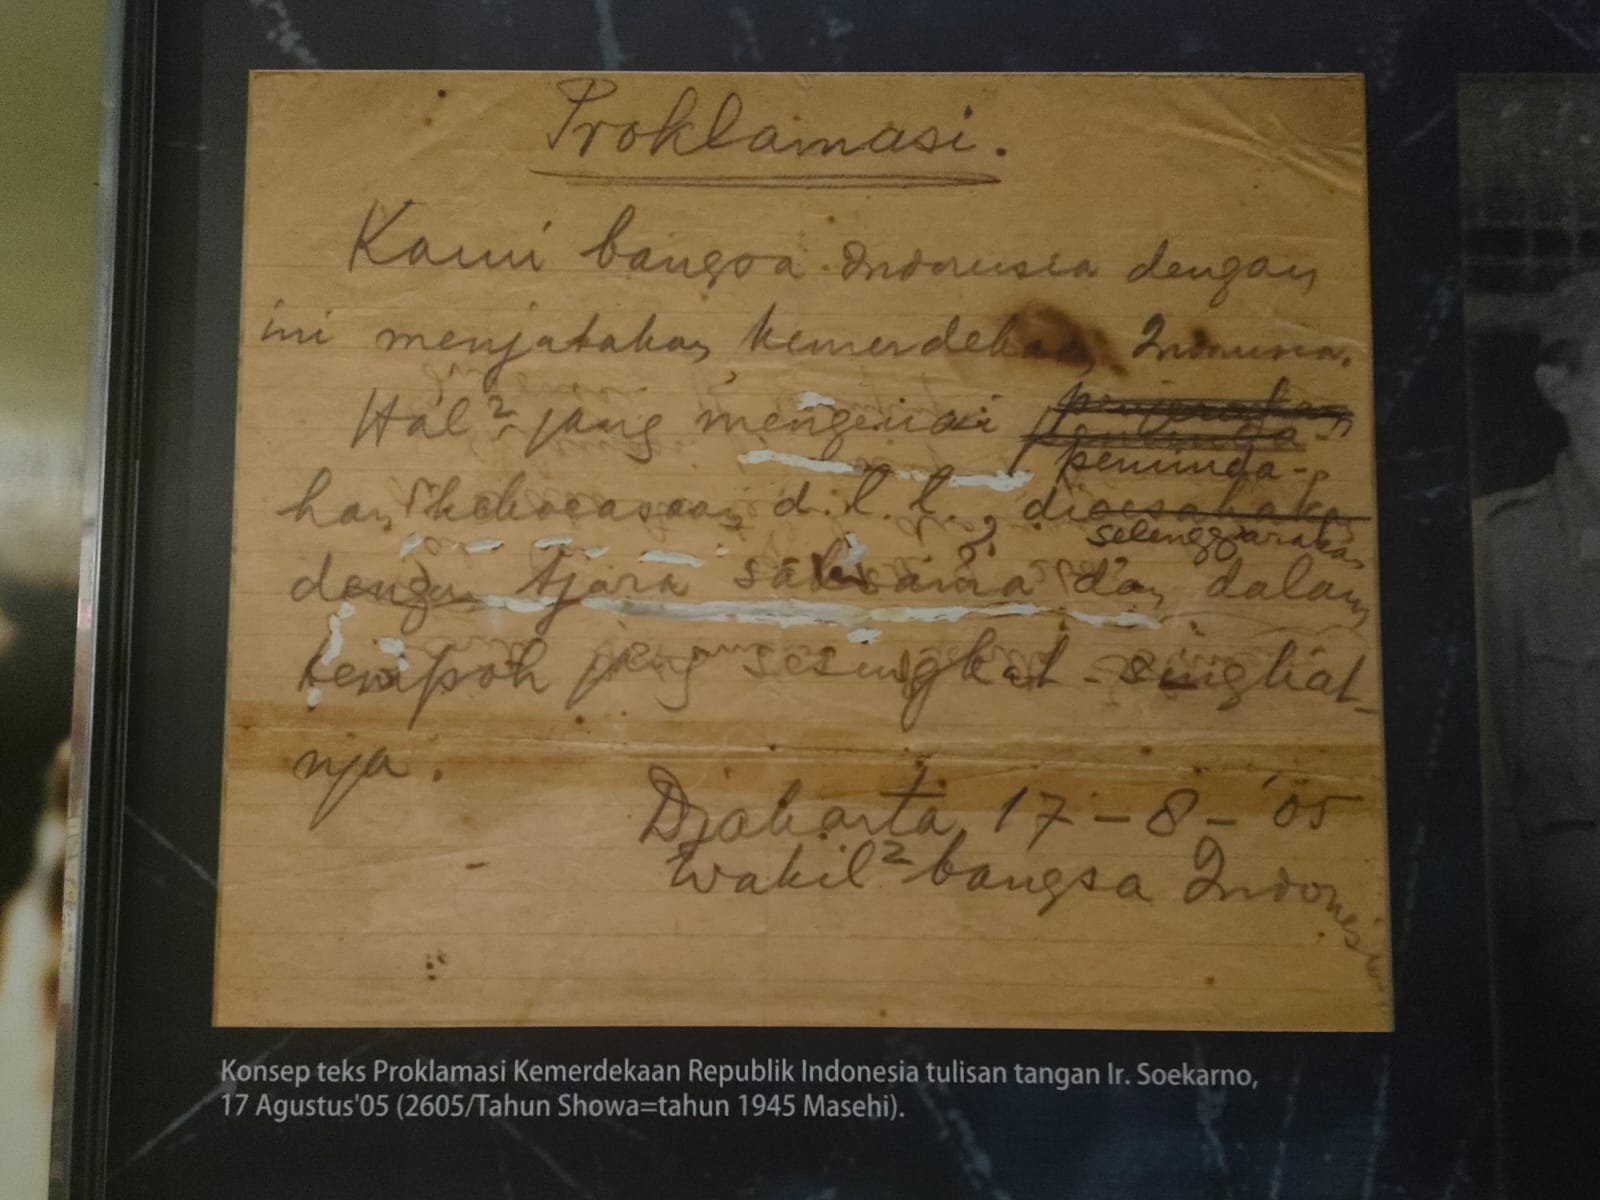 Proklamasi.
Kami bangsa Indonesia dengan
ini menjatakan kemerdekaan Indonesia.
Hal² jang mengenai
peminda-
han kekoeasaan d.l.l., dioesahakan
selenggarakan
dengan tjara saksama dan dalam
tempoh jang sesingkat-singkat-
nja.
Djakarta, 17 - 8 - '05
Wakil² bangsa Indonesia
Konsep teks Proklamasi Kemerdekaan Republik Indonesia tulisan tangan Ir. Soekarno,
17 Agustus'05 (2605/Tahun Showa=tahun 1945 Masehi).